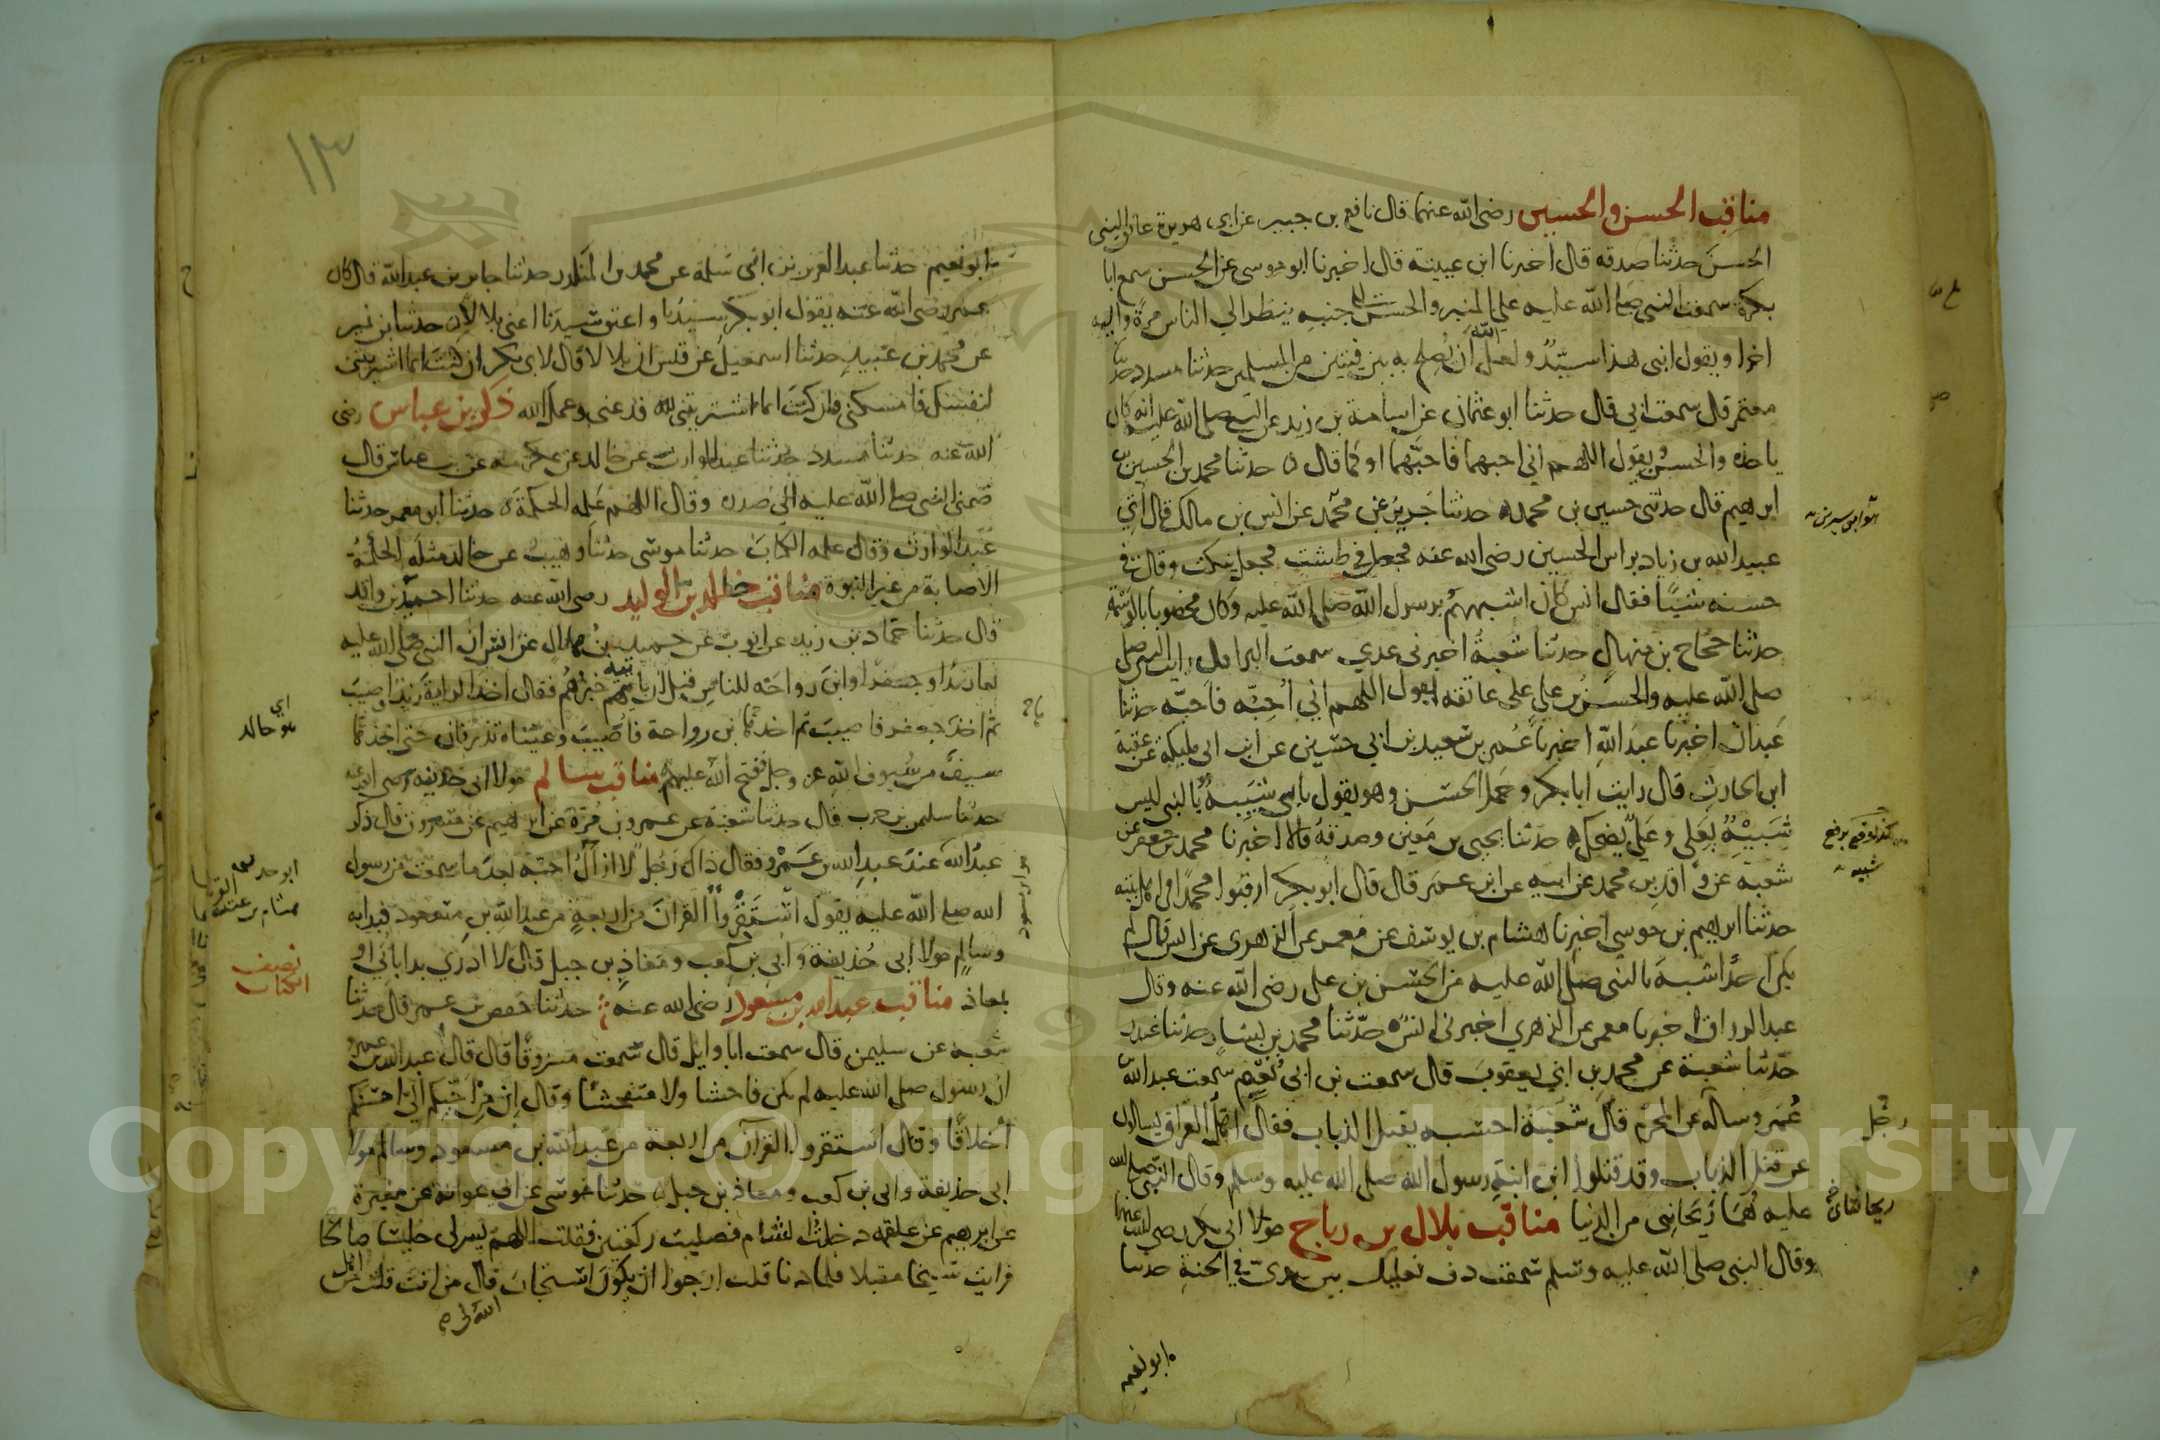 مناقب الحسن والحسين رضي الله عنهما قال نافع بن جبير عن ابي هريرة عانق النبي
الحسن حدثنا صدقه قال اخبرنا ابن عيينة قال اخبرنا ابو موسى عن الحسن سمع ابا
بكرة سمعت النبي صلى الله عليه على المنبر والحسن الى جنبه ينظر الى الناس مرة واليه
اخرا ويقول ابني هذا سيد ولعل الله ان يصلح به بين فيتين من المسلمين حدثنا مسدد حدثنا
معتمر قال سمعت ابي قال حدثنا ابو عثمان عن اسامة بن زيد عن النبي صلى الله عليه انه كان
ياخذه والحسن ويقول اللهم اني احبهما فاحبهما او كما قال حدثنا محمد بن الحسين بن
ابرهيم قال حدثني حسين بن محمد حدثنا جرير عن محمد عن انس بن مالك قال اتي
هو ابن سيرين
عبيد الله بن زياد براس الحسين رضي الله عنه فجعل في طشت فجعل ينكت وقال في
حسنه شيئا فقال انس كان اشبههم برسول الله صلى الله عليه وكان مخضوبا بالوسمة
حدثنا حجاج بن منهال حدثنا شعبة اخبرني عدي سمعت البرا قال رايت النبي صلى
صلى الله عليه والحسن بن علي على عاتقه يقول اللهم اني احبه فاحبه حدثنا
عبدان اخبرنا عبد الله اخبرنا عمر بن سعيد بن ابي حسين عن ابن ابي مليكة عن عقبة
ابن الحارث قال رايت ابا بكر وحمل الحسن وهو يقول بابي شبيه بالنبي ليس
شبيه بعلي وعلي يضحك حدثنا يحيى بن معين وصدقة قالا اخبرنا محمد بن جعفر عن
برفع شبيه
شعبة عن واقد بن محمد عن ابيه عن ابن عمر قال قال ابو بكر ارقبوا محمدا في اهل بيته
حدثنا ابرهيم بن موسى اخبرنا هشام بن يوسف عن معمر عن الزهري عن انس قال لم
يكن احد اشبه بالنبي صلى الله عليه من الحسن بن علي رضي الله عنه وقال
عبد الرزاق اخبرنا معمر عن الزهري اخبرني انس حدثنا محمد بن بشار حدثنا غندر
حدثنا شعبة عن محمد بن ابي يعقوب قال سمعت بن ابي نعيم سمعت عبد الله بن
عمر وساله عن المحرم قال شعبة احسبه يقتل الذباب فقال اهل العراق يسالون
رجل
عن قتل الذباب وقد قتلوا ابن ابنة رسول الله صلى الله عليه وسلم وقال النبي صلى الله
عليه هما ريحانتي من الدنيا مناقب بلال بن رباح مولا ابي بكر رضي الله عنهما
ريحانتاي
وقال النبي صلى الله عليه وسلم سمعت دف نعليك بين يدي في الجنة حدثنا
ابو نعيم
١٣
ابو نعيم حدثنا عبد العزيز بن ابي سلمة عن محمد بن المنكدر حدثنا جابر بن عبد الله قال كان
عمر رضي الله عنه يقول ابو بكر سيدنا واعتق سيدنا اعني بلالا حدثنا ابن نمير
عن محمد بن عبيد حدثنا اسمعيل عن قيس ان بلالا قال لابي بكر ان كنت انما اشتريتني
لنفسك فامسكني وان كنت انما اشتريتني لله فدعني وعمل الله ذكر بن عباس رضي
الله عنه حدثنا مسدد حدثنا عبد الوارث عن خالد عن عكرمة عن بن عباس قال
ضمني النبي صلى الله عليه الى صدره وقال اللهم علمه الحكمة حدثنا ابو معمر حدثنا
عبد الوارث وقال علمه الكتاب حدثنا موسى حدثنا وهيب عن خالد مثله الحكمة
الاصابة من غير النبوة مناقب خالد بن الوليد رضي الله عنه حدثنا احمد بن واقد
قال حدثنا حماد بن زيد عن ايوب عن حميد بن هلال عن انس ان النبي صلى الله عليه
نعا زيدا وجعفرا وابن رواحة للناس قبل ان ياتيهم خبرهم فقال اخذ الراية زيد فاصيب
ثم اخذ جعفر فاصيب ثم اخذها بن رواحة فاصيب وعيناه تذرفان حتى اخذها
اي هو خالد
سيف من سيوف الله عز وجل ففتح الله عليهم مناقب سالم مولا ابي حذيفة رضي الله عنه
حدثنا سليمن بن حرب قال حدثنا شعبة عن عمرو بن مرة عن ابرهيم عن مسروق قال ذكر
عبد الله عند عبد الله بن عمرو فقال ذاك رجل لا ازال احبه بعد ما سمعت من رسول
الله صلى الله عليه يقول استقروا القران من اربعة من عبد الله بن مسعود فبدا به
وسالم مولا ابي حذيفة وابي بن كعب ومعاذ بن جبل قال لا ادري بدا بابي او
نصف الكتاب
بمعاذ مناقب عبد الله بن مسعود رضي الله عنه حدثنا حفص بن عمر قال حدثنا
شعبة عن سليمن قال سمعت ابا وايل قال سمعت مسروقا قال قال عبد الله بن عمرو
ان رسول صلى الله عليه لم يكن فاحشا ولا متفحشا وقال ان من احبكم الي احسنكم
اخلاقا وقال استقروا القران من اربعة من عبد الله بن مسعود وسالم مولا
ابي حذيفة وابي بن كعب ومعاذ بن جبل حدثنا موسى عن ابي عوانة عن مغيرة
عن ابرهيم عن علقمه دخلت الشام فصليت ركعتين فقلت اللهم يسر لي جليسا صالحا
فرايت شيخا مقبلا فلما دنا قلت ارجوا ان يكون استجاب قال من انت قلت من اهل
الله لي
Copyright © King Saud University